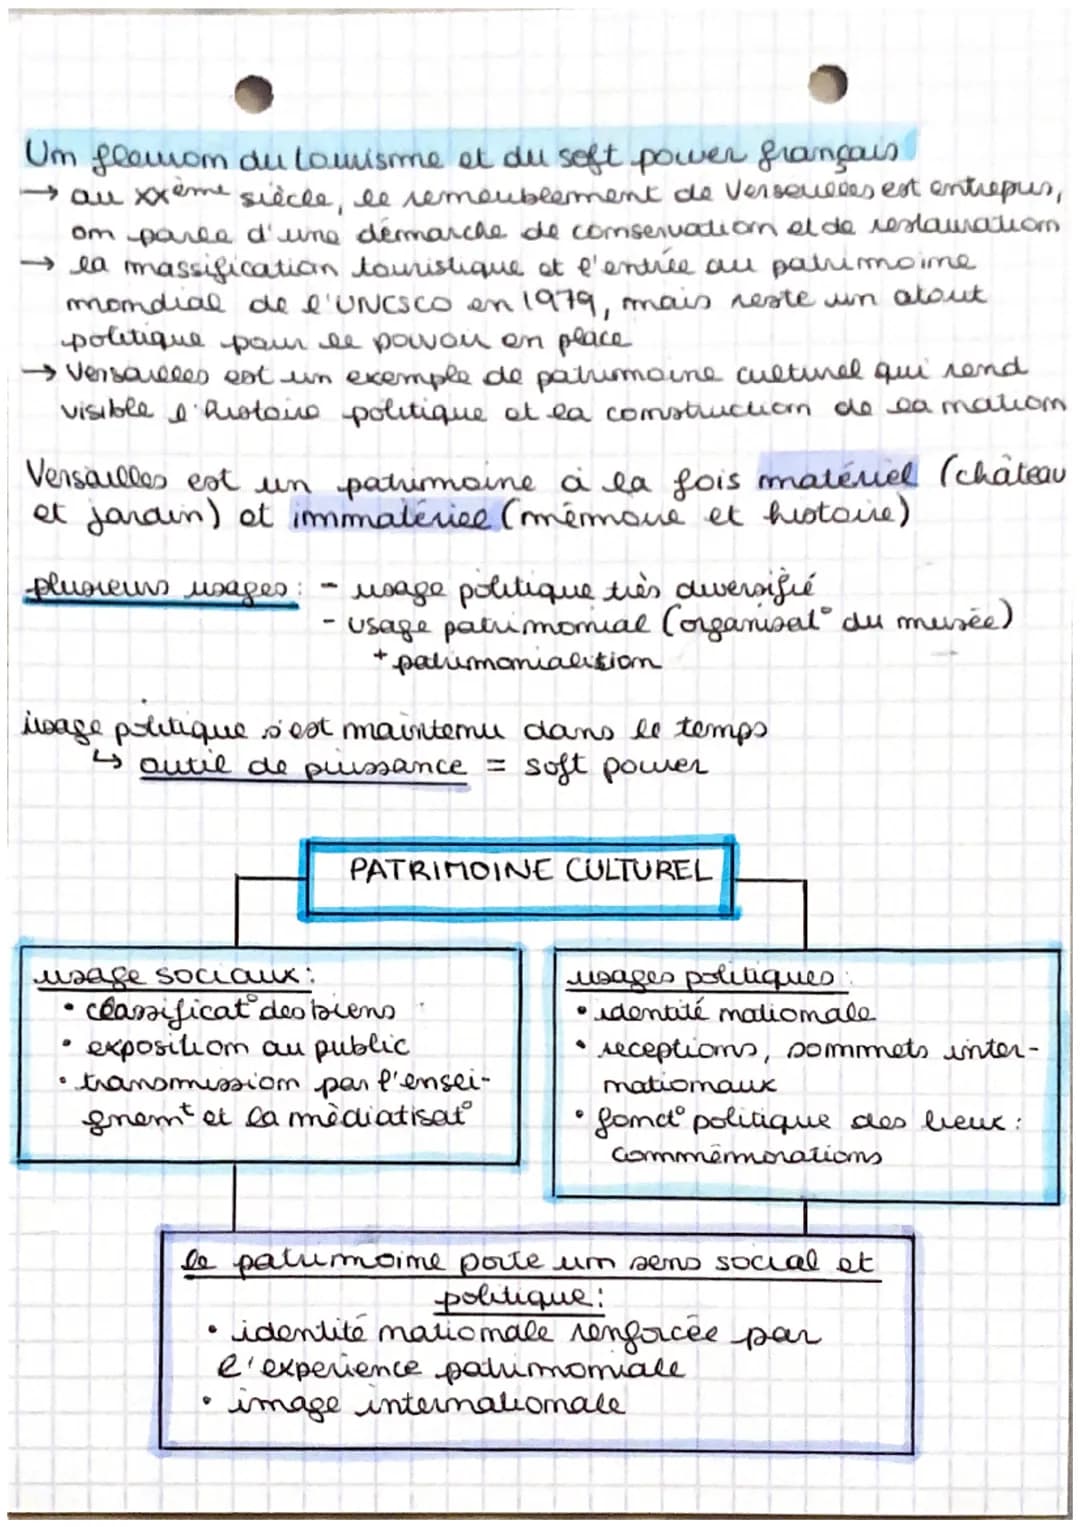 Un fleuron du tourisme et du soft power français
→ au XXème siècle, le remeublement de Versailles est entrepris,
on parle d'une démarche de conservation et de restauration
→ la massification touristique et l'entrée au patrimoine
mondial de l'UNESCO en 1979, mais reste un atout
politique pour le pouvoir en place
→ Versailles est un exemple de patrimoine culturel qui rend
visible l'histoire politique et la construction de la nation
Versailles est un patrimoine à la fois matériel (château
et jardin) et immatériel (mémoire et histoire)
plusieurs usages : - usage politique très diversifié
- usage patrimonial (organisat° du musée)
+ patrimonialition
usage politique s'est maintenu dans le temps
↳ outil de puissance = soft power
PATRIMOINE CULTUREL
usage sociaux :
• classificat° des biens
• exposition au public
• transmission par l'ensei-
gnemt et la médiatisat°
usages politiques :
• identité nationale
• receptions, sommets inter-
nationaux
• fonct° politique des lieux :
commémorations
le patrimoine porte un sens social et
politique :
• identité nationale renforcée par
l'experience patrimoniale
• image internationale